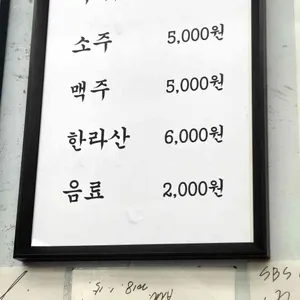 소주 5,000원
맥주 5,000원
한라산 6,000원
음료 2,000원
SBS